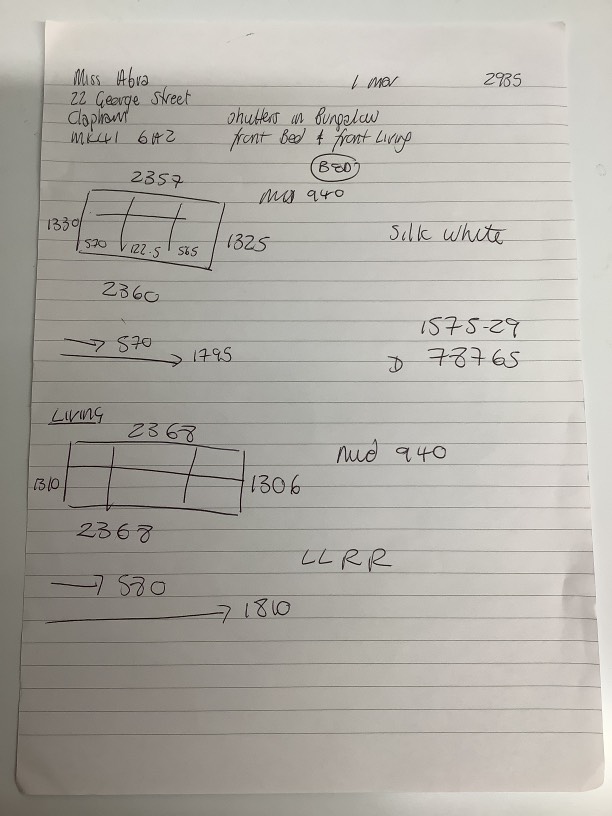 Miss Abra 1 Mar 2935
22 George Street
Clapham shutters in Bungalow
MK41 6AZ front Bed & front Living
BED
2357
Mid 940
1330
570 122.5 565
1325
Silk White
2360
→ 570
→ 1795
1575-29
D 78765
Living
2368
Mid 940
1310
1306
2368
LLRR
→ 580
→ 1810